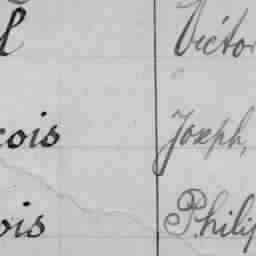 l Victor
cois Joseph,
ois Philip